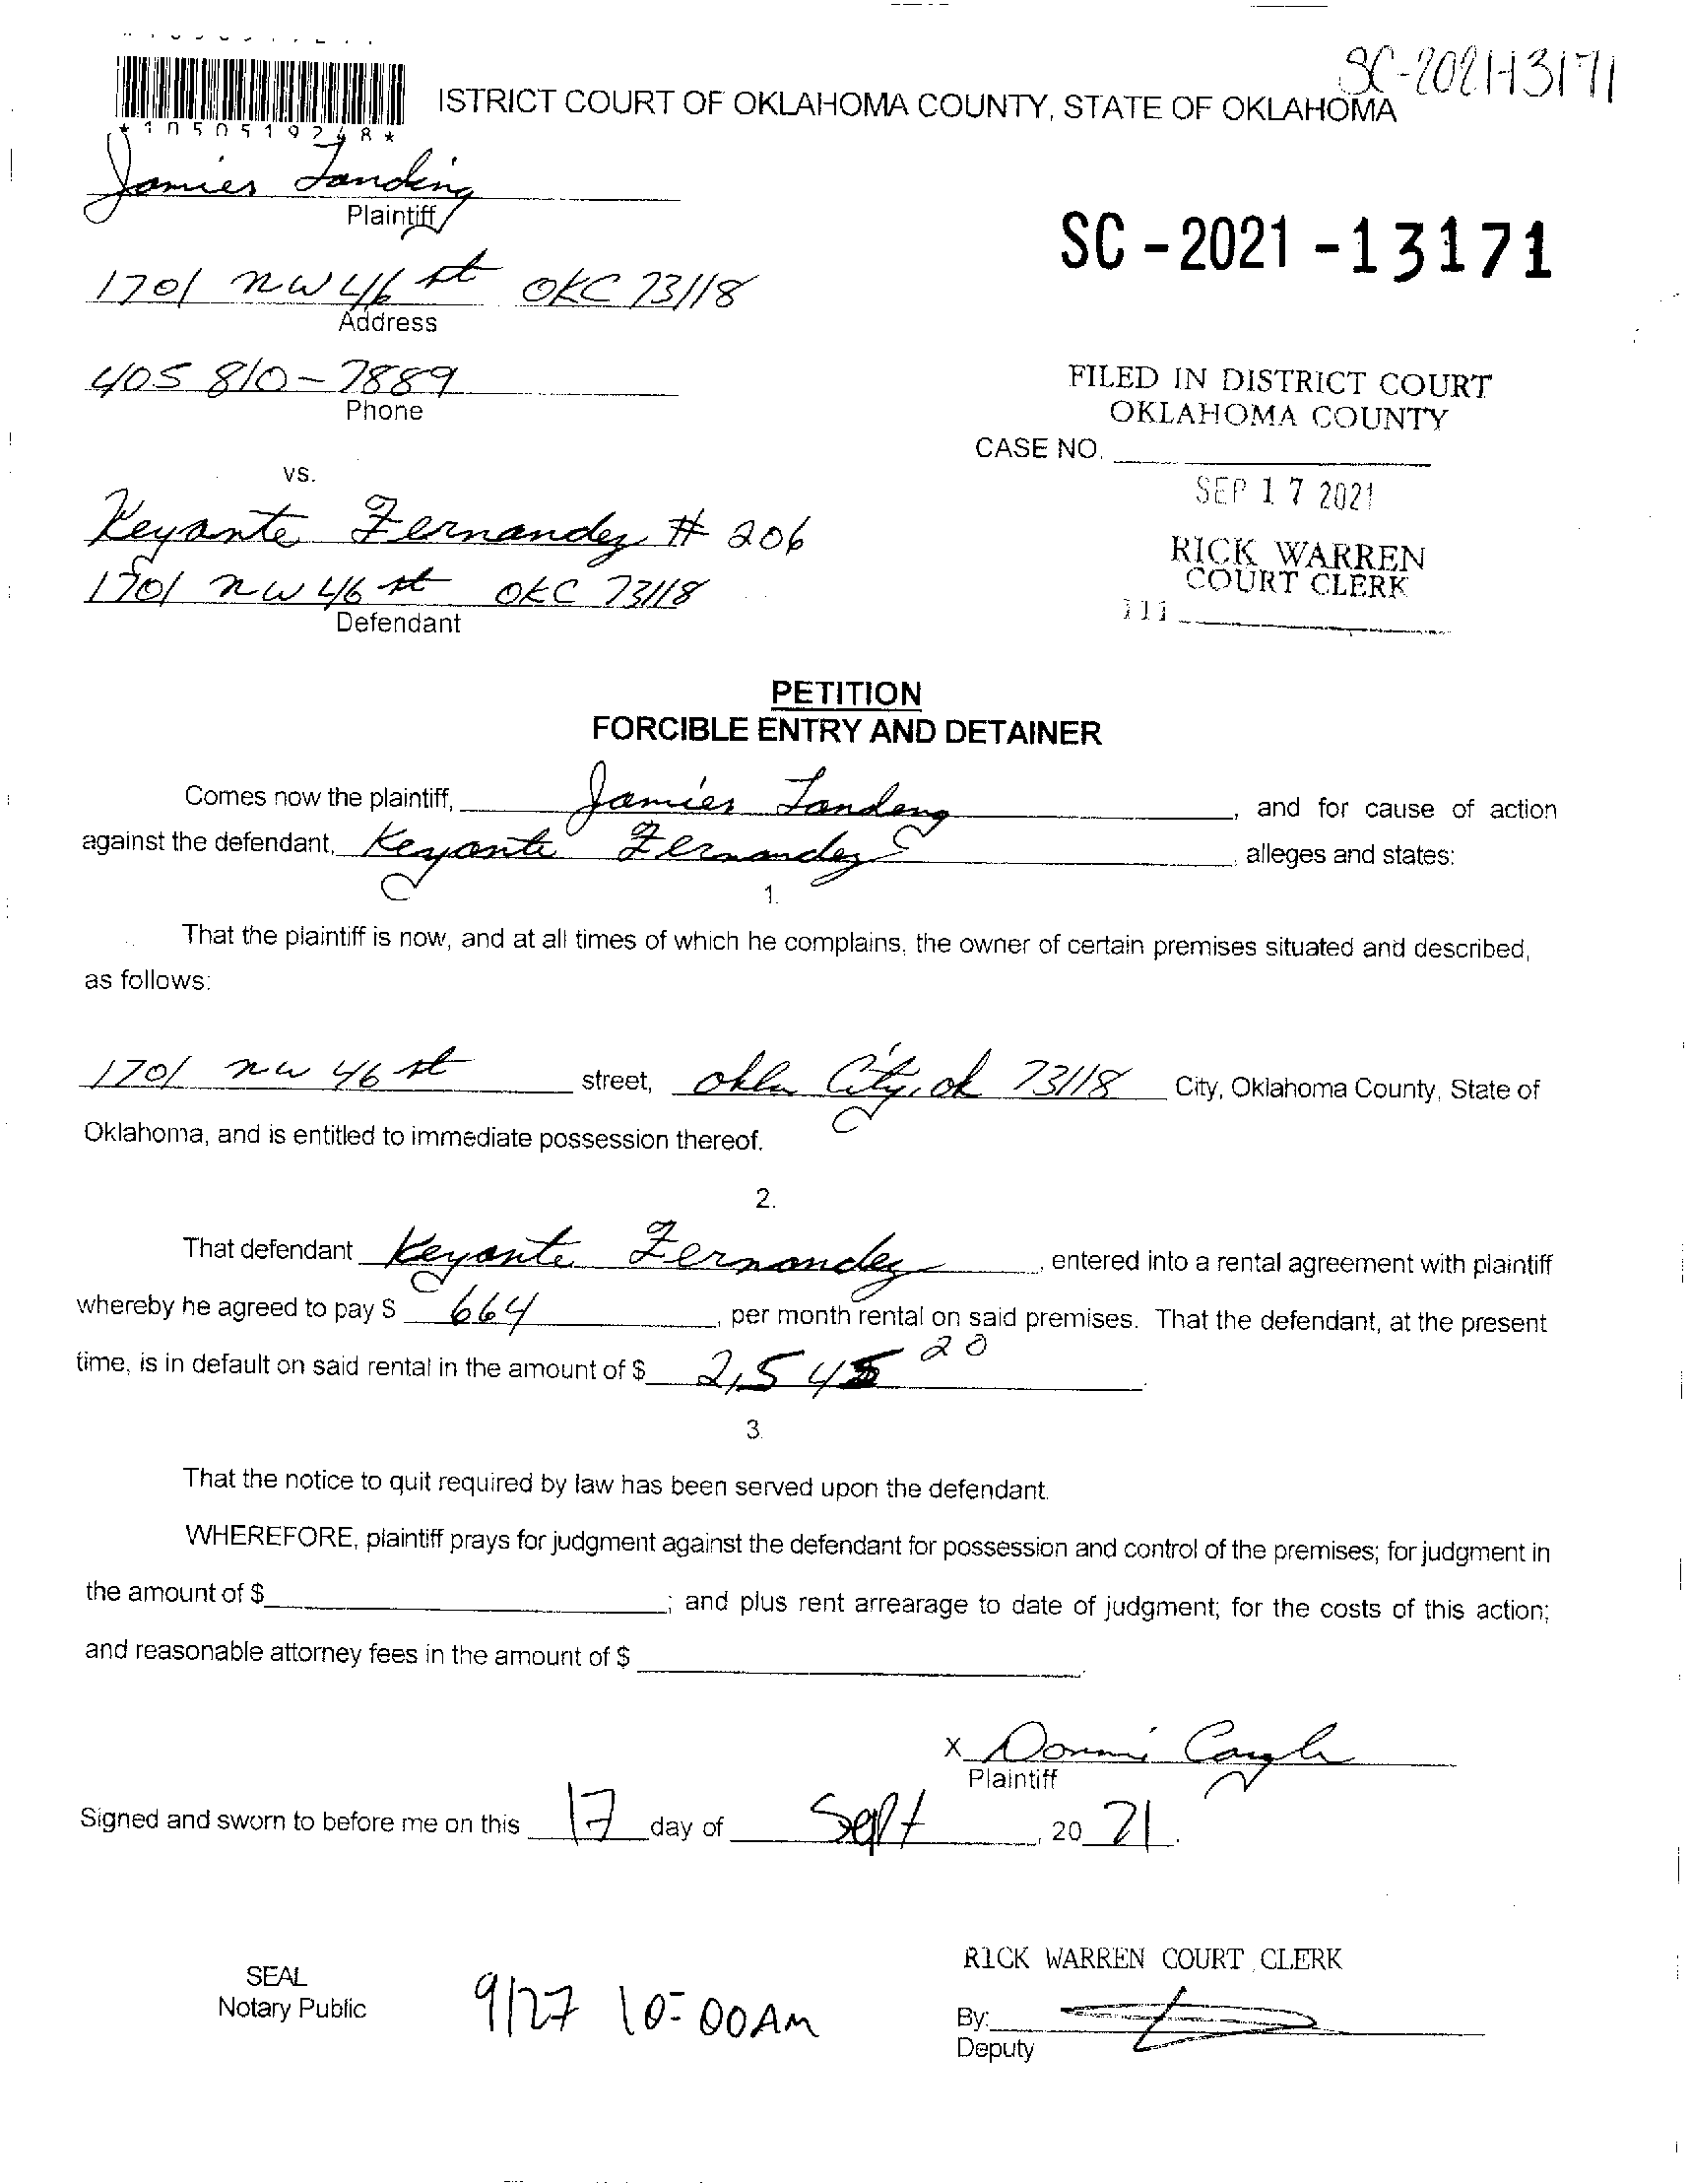 SC-2021-13171
ISTRICT COURT OF OKLAHOMA COUNTY, STATE OF OKLAHOMA
*1050519248*
Jamies Landing
Plaintiff
SC-2021-13171
1701 NW 46 st OKC 73118
Address
405 810-7889
Phone
FILED IN DISTRICT COURT
OKLAHOMA COUNTY
CASE NO.
vs.
SEP 17 2021
Keyante Fernandez # 206
RICK WARREN
COURT CLERK
1701 NW 46 st OKC 73118
111
Defendant
PETITION
FORCIBLE ENTRY AND DETAINER
Comes now the plaintiff, Jamies Landing, and for cause of action
against the defendant, Keyante Fernandez, alleges and states:
1.
That the plaintiff is now, and at all times of which he complains, the owner of certain premises situated and described,
as follows:
1701 nw 46 st street, okla City, ok 73118 City, Oklahoma County, State of
Oklahoma, and is entitled to immediate possession thereof.
2.
That defendant Keyante Fernandez, entered into a rental agreement with plaintiff
whereby he agreed to pay $ 664, per month rental on said premises. That the defendant, at the present
time, is in default on said rental in the amount of $ 2,545 20.
3.
That the notice to quit required by law has been served upon the defendant.
WHEREFORE, plaintiff prays for judgment against the defendant for possession and control of the premises; for judgment in
the amount of $; and plus rent arrearage to date of judgment; for the costs of this action;
and reasonable attorney fees in the amount of $.
X Donni
Plaintiff
Signed and sworn to before me on this 17 day of Sept, 20 21.
RICK WARREN COURT CLERK
SEAL
Notary Public
9/27 10:00AM
By:
Deputy